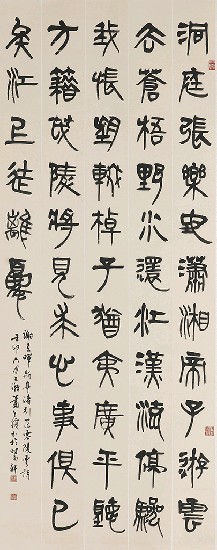 洞庭張樂地瀟湘帝子遊雲
去蒼梧野水還江漢流停驂
我悵望輟棹子猶夷廣平聽
方籍茂陵將見求心事俱已
矣江上徒離憂
謝玄暉新亭渚別范零陵雲詩